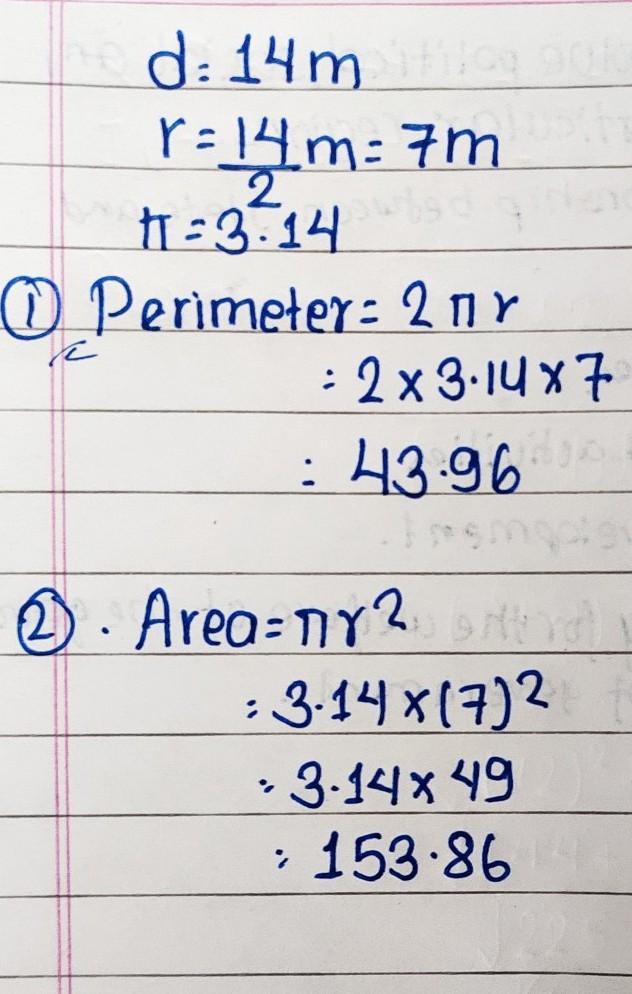 d: 14m
r = 14/2 m = 7m
π = 3.14
① Perimeter = 2πr
: 2 × 3.14 × 7
: 43.96
② . Area = πr²
: 3.14 × (7)²
: 3.14 × 49
: 153.86